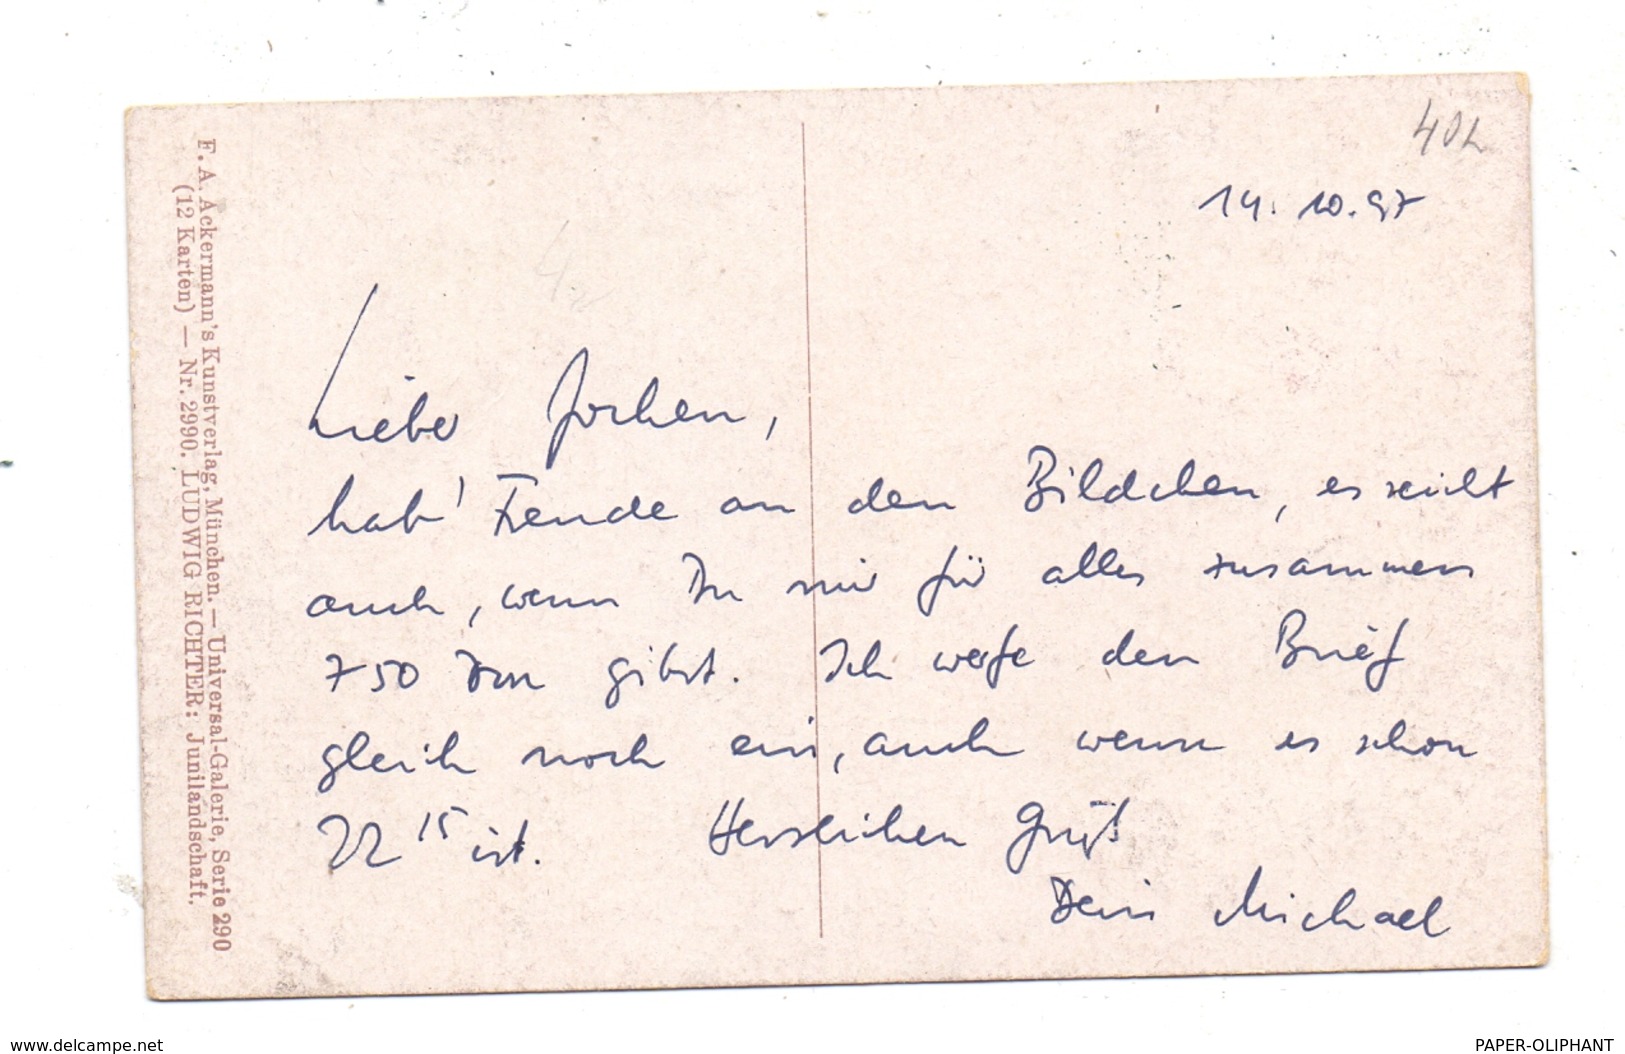 F. A. Ackermann's Kunstverlag, München. — Universal-Galerie, Serie 290
(12 Karten) — Nr. 2990. LUDWIG RICHTER: Junilandschaft.
14. 10. 97
Lieber Jochen,
hab' Freude an den Bildchen, es reicht
auch, wenn Du mir für alles zusammen
750 DM gibst. Ich werfe den Brief
gleich noch ein, auch wenn es schon
22 15 ist. Herzlichen Gruß
Dein Michael
www.delcampe.net
PAPER-OLIPHANT